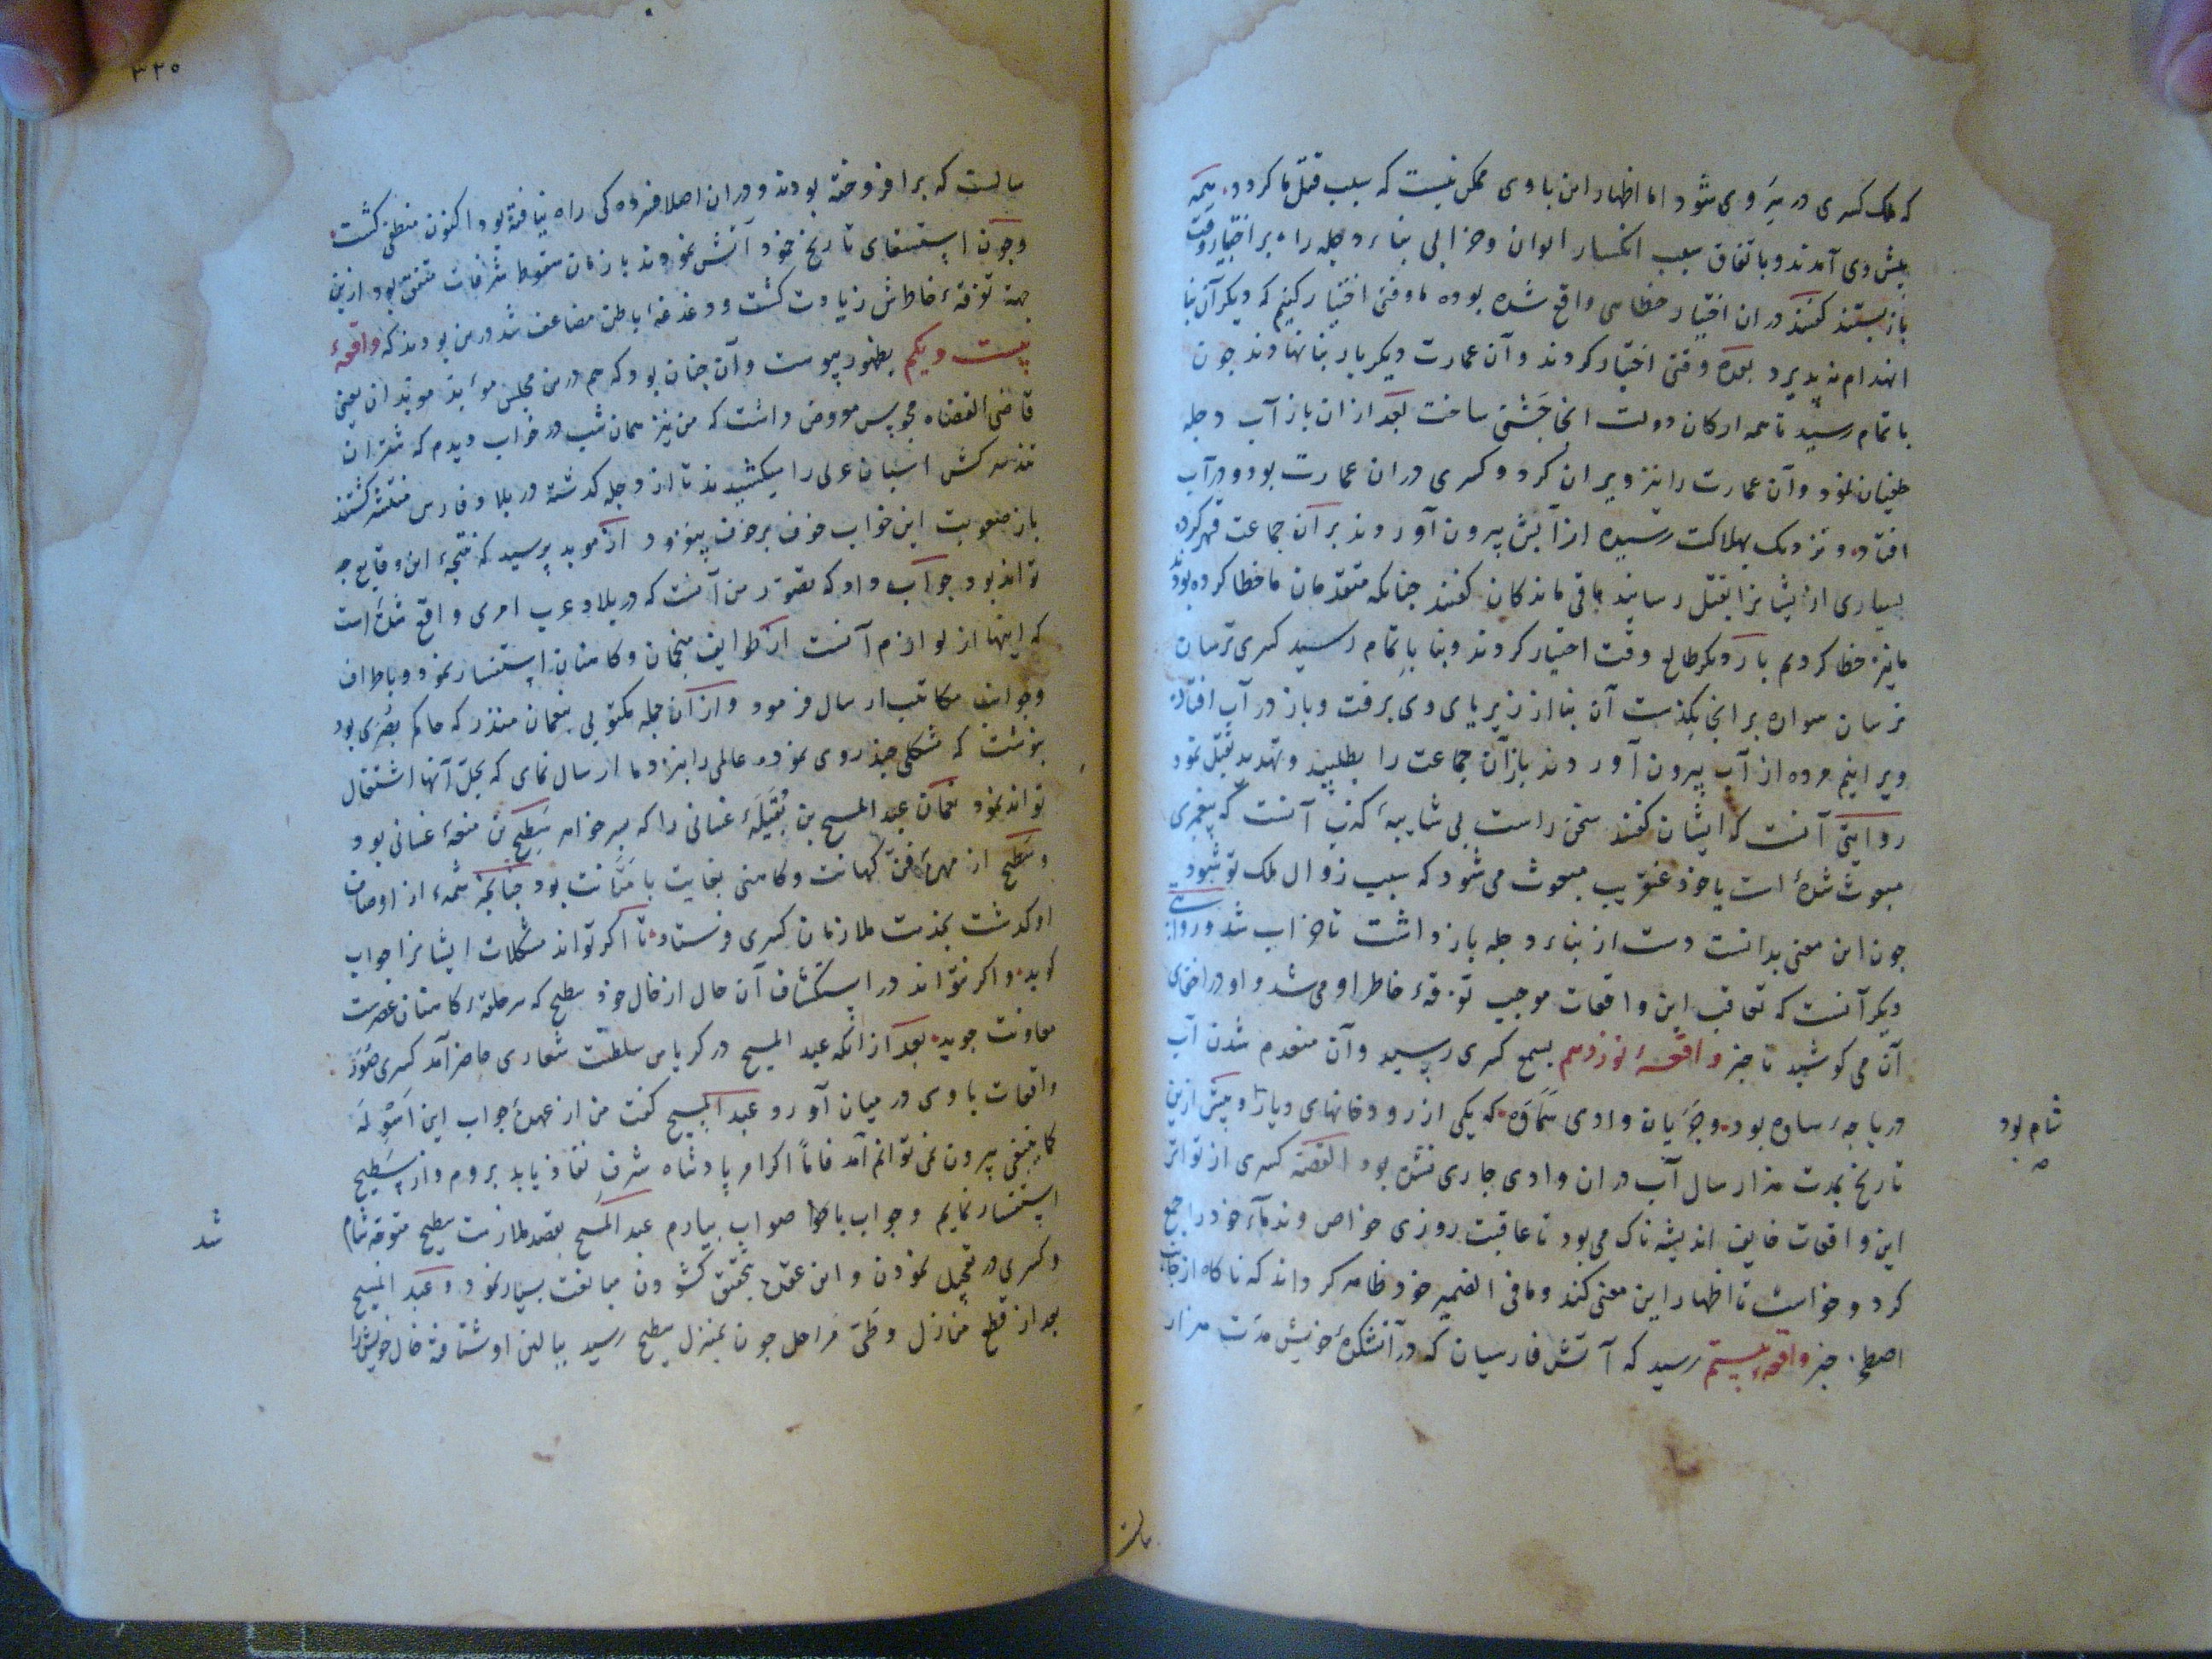 که ملک کسری در سپری می‌شود اما اظهار این با وی ممکن نیست که سبب قتل ما کردد همه
پیش وی آمدند و باتفاق سبب انکسار ایوان و خرابی بناء دجله را بر اختیار وقت
باز بستند کفتند در ان اختیار خطایی واقع شده بوده ما وقتی اختیار کنیم که دیکر آن بنا
انهدام نپذیرد بعده وقتی اختیار کردند و آن عمارت دیکر بار بنا نهادند چون
باتمام رسید تا همه ارکان دولت انجا جشنی ساخت بعد از ان باز آب دجله
طغیان نمود و آن عمارت را نیز ویران کرد و کسری در ان عمارت بود و در آب
افتاد و نزدیک بهلاکت رسیده از آبش بیرون آوردند بر آن جماعت قهر کرده
بسیاری از یشانرا بقتل رسانید باقی ماندکان کفتند چنانکه متقدمان ما خطا کرده بودند
ما نیز خطا کردیم بار دیکر طالع وقت اختیار کردند و بنا باتمام رسید کسری ترسان
ترسان سواره بر انجا بکذشت آن بنا از زیر پای وی برفت و باز در آب افتاد
ویرا نیم مرده از آب بیرون آوردند باز آن جماعت را بطلبید و تهدید بقتل نمود
روایتی آنست که ایشان کفتند سخن راست بی شایبهٔ کذب آنست که پیغمبری
مبعوث شدهٔ است یا خود عنقریب مبعوث می‌شود که سبب زوال ملک تو شود
چون این معنی بدانست دست از بناء دجله بازداشت تا خراب شد و روایتی
دیکر آنست که تعاقب این واقعات موجب تفرقهٔ خاطر او می شد و او در اخفای
آن می کوشید تا خبر واقعهٔ نوزدهم بسمع کسری رسید و آن منعدم شدن آب
دریاچهٔ ساوه بود و جریان وادی سماوه که یکی از رودخانهای دیار و پیش ازین
شام بود صح
تاریخ بمدت هزار سال آب در ان وادی جاری نشده بود القصه کسری از تواتر
این واقعات خایف اندیشه ناک می بود تا عاقبت روزی خواص و ندماء خود را جمع
کرد و خواست تا اظهار این معنی کند و ما فی الضمیر خود ظاهر کرداند که ناکاه از جانب
اصطخر خبر واقعهٔ بیستم رسید که آتش فارسیان که در آتشکدهٔ خویش مدت هزار
سالست
۳۲۵
سالست که برافروخته بودند و در ان اصلا فسردکی راه نیافته بود اکنون منطفی کشت
و چون استسفای تاریخ خمود آتش نمودند با زمان سقوط شرفات متفق بود ازین
جهت تفرقهٔ خاطرش زیادت کشت و دغدغهٔ باطن مضاعف شد درین بودند که واقعهٔ
بیست و یکم بظهور پیوست و آن چنان بود که هم درین مجلس موبد موبدان یعنی
قاضی القضاه مجوس معروض داشت که من نیز همان شب در خواب دیدم که شتران
تند سرکش اسبان عربی را میکشیدند تا از دجله کذشته در بلاد فارس منتشر کشتند
باز صعوبت این خواب خوف بر خوف بیفزود از موبد پرسید که نتیجهٔ این وقایع چه
تواند بود جواب داد که تصور من آنست که در بلاد عرب امری واقع شده است
که اینها از لوازم آنست از طوایف منجمان و کاهنان استفسار نمود و باطراف
و جوانب مکاتیب ارسال فرمود و از آن جمله مکتوبی بنعمان منذر که حاکم بصری بود
بنوشت که مشکلی چند روی نموده عالمی را نزد ما ارسال نمای که بحل آنها اشتغال
تواند نمود نعمان عبد المسیح بن بقیلهٔ غسانی را که پسر خواهر سطیح بن منعهٔ غسانی بود
و سطیح از مهرهٔ فن کهانت و کاهنی بغایت با متانت بود چنانچه شمهٔ از اوصاف
او کذشت بخدمت ملازمان کسری فرستاد تا اکر تواند مشکلات ایشانرا جواب
کوید و اکر نتواند در استکشاف آن حال از خال خود سطیح که سرحلقهٔ کاهنان عصرست
معاونت جوید بعد از انکه عبد المسیح در کریاس سلطنت شعاری حاضر آمد کسری صور
واقعات با وی در میان آورد عبد المسیح کفت من از عهدهٔ جواب این اسوله
کما ینبغی بیرون نمی توانم آمد فاما اکر امر پادشاه شرف نفاذ یابد بروم و از سطیح
استفسار نمایم و جواب با صواب بیارم عبد المسیح بقصد ملازمت سطیح متوجه شام
شد
و کسری در تعجیل نمودن و این عقده بتحقیق کشودن مبالغت بسیار نمود و عبد المسیح
بعد از قطع منازل و طی مراحل چون بمنزل سطیح رسید ببالین او شتافته خال خویش را